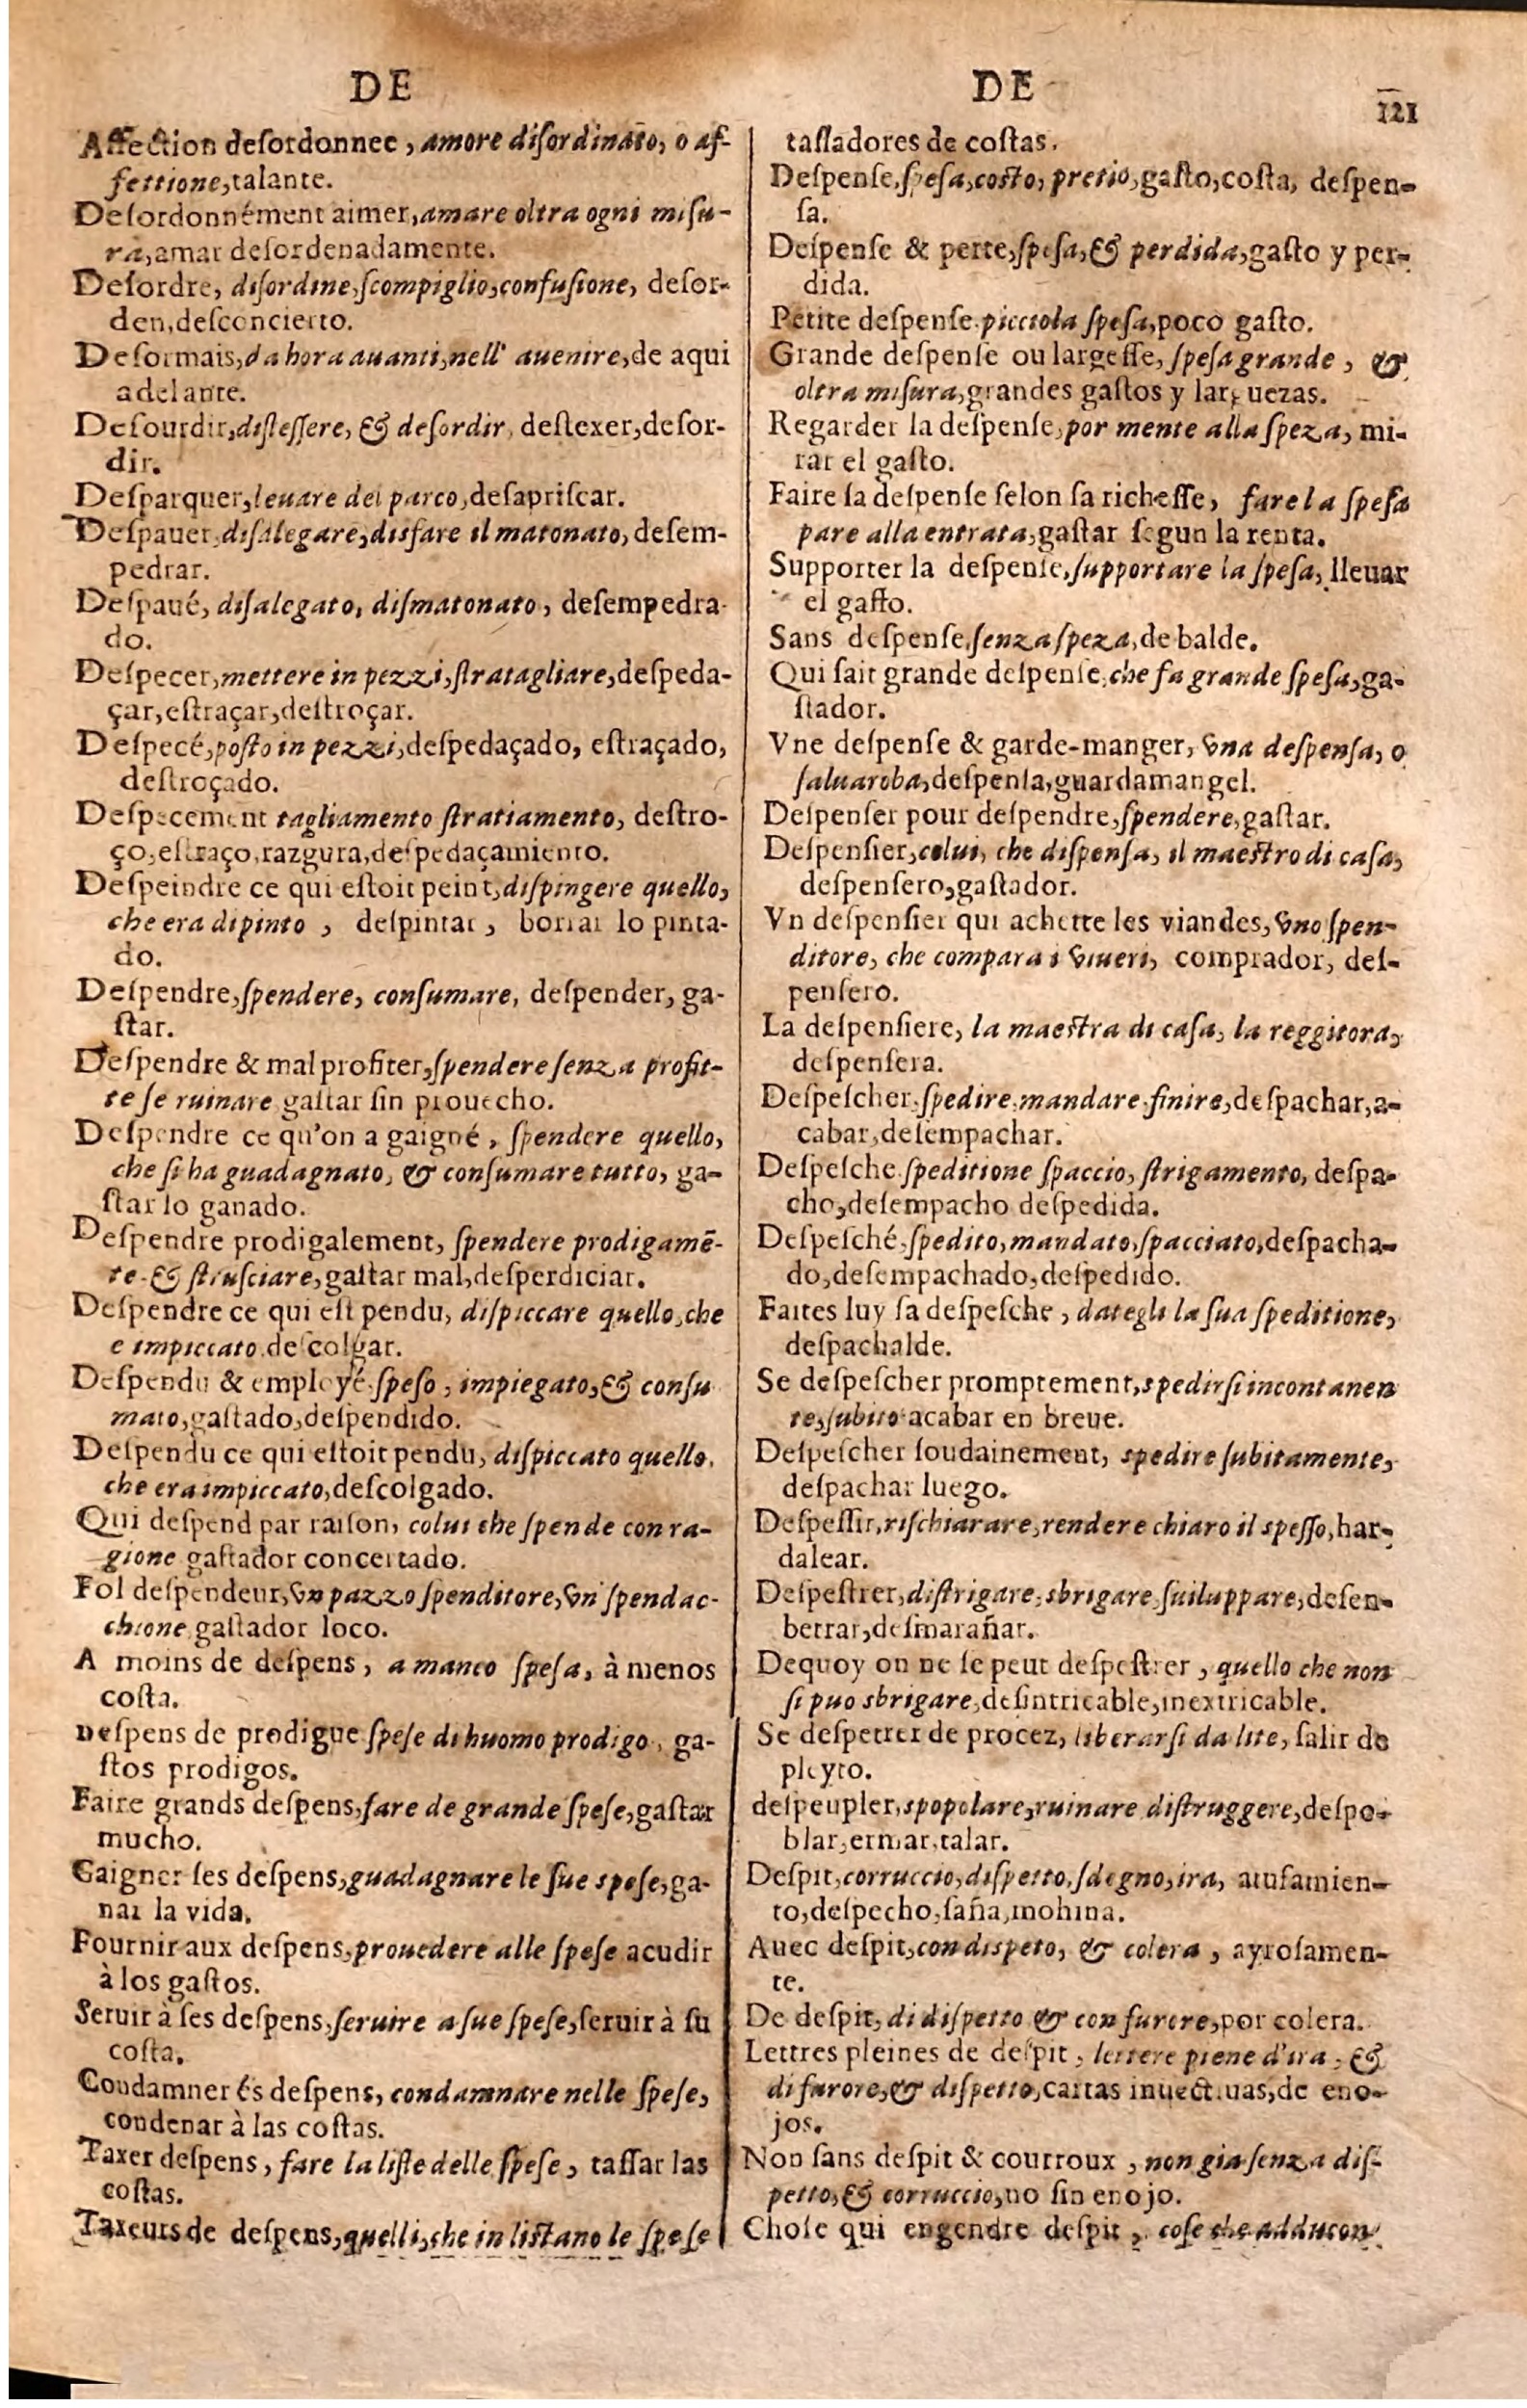 DE
Affection desordonnee, amore disordinato, o af-
fettione,talante.
Desordonnément aimer,amare oltra ogni misu-
ra,amar desordenadamente.
Desordre, disordine,scompiglio,confusione, desor-
den,desconcierto.
Desormais,da hora auanti,nell' auenire,de aqui
adelante.
Desourdir,distessere, & desordir, destexer,desor-
dir.
Desparquer,leuare del parco,desapriscar.
Despauer,disalegare,disfare il matonato,desem-
pedrar.
Despaué, disalegato, dismatonato, desempedra-
do.
Despecer,mettere in pezzi,stratagliare,despeda-
çar,estraçar,destroçar.
Despecé,posto in pezzi,despedaçado, estraçado,
destroçado.
Despecement tagliamento stratiamento, destro-
ço,estraço,razgura,despedaçamiento.
Despeindre ce qui estoit peint,dispingere quello,
che era dipinto, despintar, borrar lo pinta-
do.
Despendre,spendere, consumare, despender, ga-
star.
Despendre & mal profiter,spendere senza profit-
te se ruinare gastar sin prouecho.
Despendre ce qu'on a gaigné, spendere quello,
che si ha guadagnato, & consumare tutto, ga-
star lo ganado.
Despendre prodigalement, spendere prodigamē-
te & strusciare,gastar mal,desperdiciar.
Despendre ce qui est pendu, dispiccare quello,che
e impiccato descolgar.
Despendu & employé speso, impiegato,& consu
mato,gastado,despendido.
Despendu ce qui estoit pendu, dispiccato quello,
che era impiccato,descolgado.
Qui despend par raison, colui che spende con ra-
gione gastador concertado.
Fol despendeur,vn pazzo spenditore,vn spendac-
chione gastador loco.
A moins de despens, a manco spesa, à menos
costa.
Despens de prodigue spese di huomo prodigo, ga-
stos prodigos.
Faire grands despens,fare de grande spese,gastar
mucho.
Gaigner ses despens,guadagnare le sue spese,ga-
nar la vida.
Fournir aux despens,prouedere alle spese acudir
à los gastos.
Seruir à ses despens,seruire a sue spese,seruir à su
costa.
Condamner és despens, condamnare nelle spese,
condenar à las costas.
Taxer despens, fare la liste delle spese, tassar las
costas.
Taxeurs de despens,quelli,che in listano le spese
DE
121
tassadores de costas.
Despense,spesa,costo, pretio,gasto,costa, despen-
sa.
Despense & perte,spesa,& perdida,gasto y per-
dida.
Petite despense picciola spesa,poco gasto.
Grande despense ou largesse, spesa grande, &
oltra misura,grandes gastos y larguezas.
Regarder la despense,por mente alla speza, mi-
rar el gasto.
Faire sa despense selon sa richesse, fare la spesa
pare alla entrata,gastar segun la renta.
Supporter la despense,supportare la spesa, lleuar
el gasto.
Sans despense,senza speza,de balde.
Qui fait grande despense,che fa grande spesa,ga-
stador.
Vne despense & garde-manger, vna despensa, o
saluaroba,despensa,guardamangel.
Despenser pour despendre,spendere,gastar.
Despensier,colui, che dispensa, il maestro di casa,
despensero,gastador.
Vn despensier qui achette les viandes,vno spen-
ditore, che compara i viueri, comprador, des-
pensero.
La despensiere, la maestra di casa, la reggitora,
despensera.
Despescher,spedire,mandare,finire,despachar,a-
cabar,desempachar.
Despesche speditione spaccio, strigamento, despa-
cho,desempacho despedida.
Despesché,spedito,mandato,spacciato,despacha-
do,desempachado,despedido.
Faites luy sa despesche, dategli la sua speditione,
despachalde.
Se despescher promptement,spedirsi incontanen
te,subito acabar en breue.
Despescher soudainement, spedire subitamente,
despachar luego.
Despessir,rischiarare,rendere chiaro il spesso,har-
dalear.
Despestrer,distrigare,sbrigare,suiluppare,desen-
betrar,desmarañar.
Dequoy on ne se peut despestrer, quello che non
si puo sbrigare,desintricable,inextricable.
Se despetrer de procez, liberarsi da lite, salir de
pleyto.
despeupler,spopolare,ruinare distruggere,despo-
blar,ermar,talar.
Despit,corruccio,dispetto,sdegno,ira, atufamien-
to,despecho,saña,mohina.
Auec despit,con dispeto, & colera, ayrosamen-
te.
De despit, di dispetto & con furore,por colera.
Lettres pleines de despit, lettere piene d'ira, &
di furore,& dispetto,cartas inuectiuas,de eno-
jos.
Non sans despit & courroux, non gia senza dis-
petto,& corruccio,no sin enojo.
Chose qui engendre despit, cose che adducon